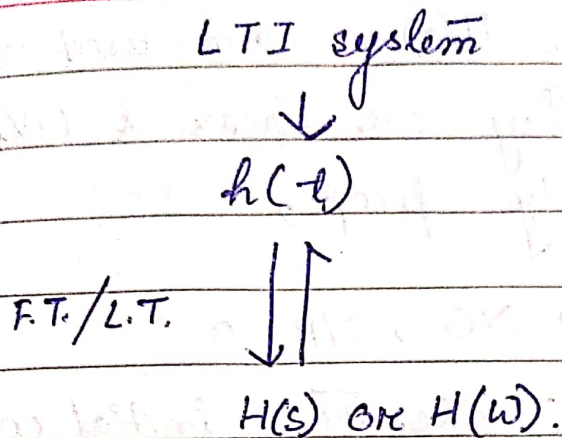 LTI system
h(t)
F.T./L.T.
H(s) or H(ω).